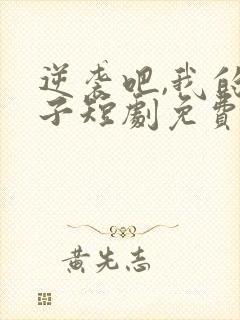 逆袭吧,我的
子短劇免費
黄先志